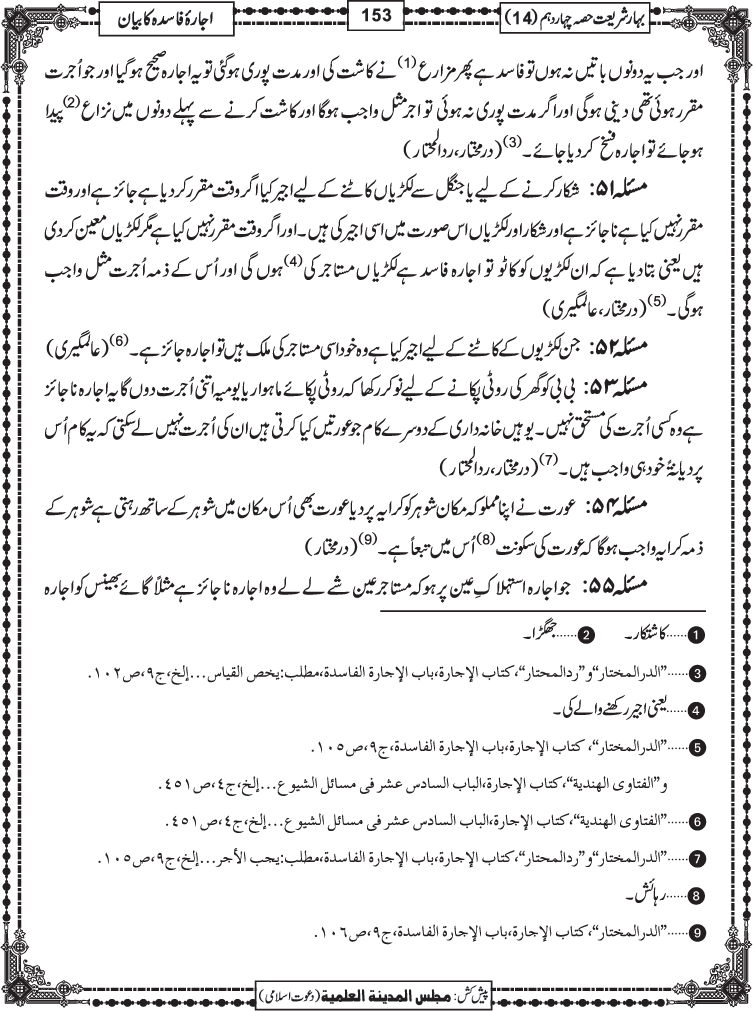 بہار شریعت حصہ چہاردہم (14)
153
اجارۂ فاسدہ کا بیان
اور جب یہ دونوں باتیں نہ ہوں تو فاسد ہے پھر مزارع(1) نے کاشت کی اور مدت پوری ہوگئی تو یہ اجارہ صحیح ہوگیا اور جو اُجرت
مقرر ہوئی تھی دینی ہوگی اور اگر مدت پوری نہ ہوئی تو اجر مثل واجب ہوگا اور کاشت کرنے سے پہلے دونوں میں نزاع(2) پیدا
ہو جائے تو اجارہ فسخ کر دیا جائے۔(3) (درمختار، ردالمحتار)
مسئلہ ۵۱: شکار کرنے کے لیے یا جنگل سے لکڑیاں کاٹنے کے لیے اجیر کیا اگر وقت مقرر کر دیا ہے جائز ہے اور وقت
مقرر نہیں کیا ہے ناجائز ہے اور شکار اور لکڑیاں اس صورت میں اسی اجیر کی ہیں۔ اور اگر وقت مقرر نہیں کیا ہے مگر لکڑیاں معین کر دی
ہیں یعنی بتا دیا ہے کہ ان لکڑیوں کو کاٹو تو اجارہ فاسد ہے لکڑیاں مستاجر کی(4) ہوں گی اور اُس کے ذمہ اُجرت مثل واجب
ہوگی۔(5) (درمختار، عالمگیری)
مسئلہ ۵۲: جن لکڑیوں کے کاٹنے کے لیے اجیر کیا ہے وہ خود اسی مستاجر کی ملک ہیں تو اجارہ جائز ہے۔(6) (عالمگیری)
مسئلہ ۵۳: بی بی کو گھر کی روٹی پکانے کے لیے نوکر رکھا کہ روٹی پکائے ماہوار یا یومیہ اتنی اُجرت دوں گا یہ اجارہ ناجائز
ہے وہ کسی اُجرت کی مستحق نہیں۔ یوہیں خانہ داری کے دوسرے کام جو عورتیں کیا کرتی ہیں ان کی اُجرت نہیں لے سکتی کہ یہ کام اُس
پر دیانۃً خود ہی واجب ہیں۔(7) (درمختار، ردالمحتار)
مسئلہ ۵۴: عورت نے اپنا مملوکہ مکان شوہر کو کرایہ پر دیا عورت بھی اُس مکان میں شوہر کے ساتھ رہتی ہے شوہر کے
ذمہ کرایہ واجب ہوگا کہ عورت کی سکونت(8) اُس میں تبعاً ہے۔(9) (درمختار)
مسئلہ ۵۵: جو اجارہ استہلاکِ عین پر ہو کہ مستاجر عین شے لے لے وہ اجارہ ناجائز ہے مثلاً گائے بھینس کو اجارہ
1......کاشتکار۔ 2......جھگڑا۔
3......"الدرالمختار" و "ردالمحتار"، کتاب الإجارة، باب الإجارة الفاسدة، مطلب: یخص القیاس...إلخ، ج٩، ص١٠٢.
4......یعنی اجیر رکھنے والے کی۔
5......"الدرالمختار"، کتاب الإجارة، باب الإجارة الفاسدة، ج٩، ص١٠٥.
و "الفتاوی الهندیة"، کتاب الإجارة، الباب السادس عشر فی مسائل الشیوع...إلخ، ج٤، ص٤٥١.
6......"الفتاوی الهندیة"، کتاب الإجارة، الباب السادس عشر فی مسائل الشیوع...إلخ، ج٤، ص٤٥١.
7......"الدرالمختار" و "ردالمحتار"، کتاب الإجارة، باب الإجارة الفاسدة، مطلب: یجب الأجر...إلخ، ج٩، ص١٠٥.
8......رہائش۔
9......"الدرالمختار"، کتاب الإجارة، باب الإجارة الفاسدة، ج٩، ص١٠٦.
پیش کش: مجلس المدینة العلمیة (دعوت اسلامی)